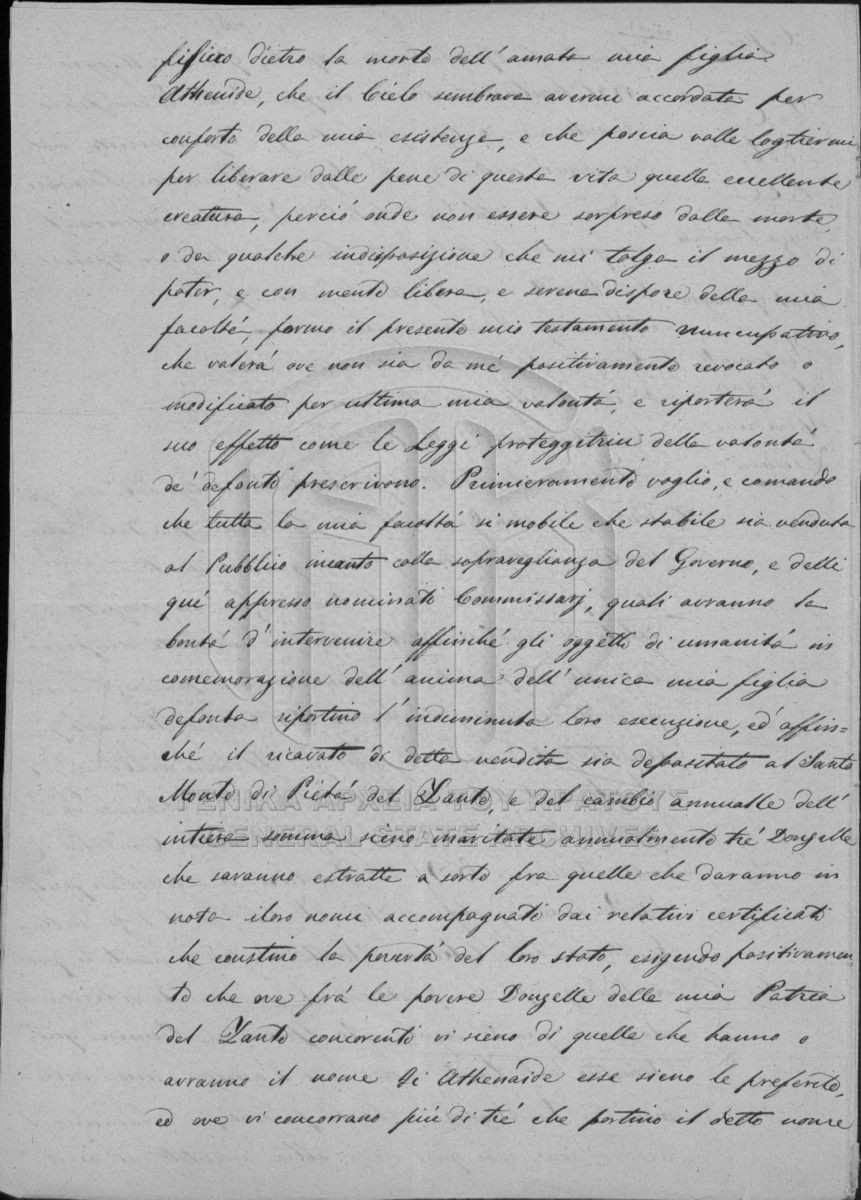 fisico dietro la morte dell' amata mia figlia
Athenaide, che il Cielo sembrava avermi accordata per
conforto della mia esistenza, e che poscia volle togliermi
per liberare dalle pene di questa vita quella eccellente
creatura, perciò onde non essere sorpreso dalla morte,
o da qualche indisposizione che mi tolga il mezzo di
poter, e con mente libera, e serena dispore della mia
facoltà, formo il presente mio testamento nuncupativo,
che valerà ove non sia da mé positivamente revocato o
modificato per ultima mia volontà, e riporterà il
suo effetto come le Leggi proteggitrici della volontà
de' defonti prescrivono. Primieramente voglio, e comando
che tutta la mia facoltà si mobile che stabile sia venduta
al Pubblico incanto colla sopraveglianza del Governo, e delli
quì appresso nominati Commissarj, quali avranno la
bontà d' intervenire affinché gli oggetti di umanità in
comemorazione dell' anima dell' unica mia figlia
defonta riportino l' indiminuta loro esecuzione, ed' affin=
ché il ricavato di detta vendita sia depositato al Santo
Monte di Pietà del Zante, e del cambio annualle dell'
intiera somma sieno maritate annualmente tré Donzelle
che saranno estratte a sorte fra quelle che daranno in
nota i loro nomi accompagnati dai relativi certificati
che constino la povertà del loro stato, esigendo positivamen=
te che ove frà le povere Donzelle della mia Patria
del Zante concorenti vi sieno di quelle che hanno o
avranno il nome di Athenaide esse sieno le preferite,
ed ove vi concorrano più di tré che portino il detto nome
ΓΕΝΙΚΑ ΑΡΧΕΙΑ ΤΟΥ ΚΡΑΤΟΥΣ
GENERAL STATE ARCHIVES